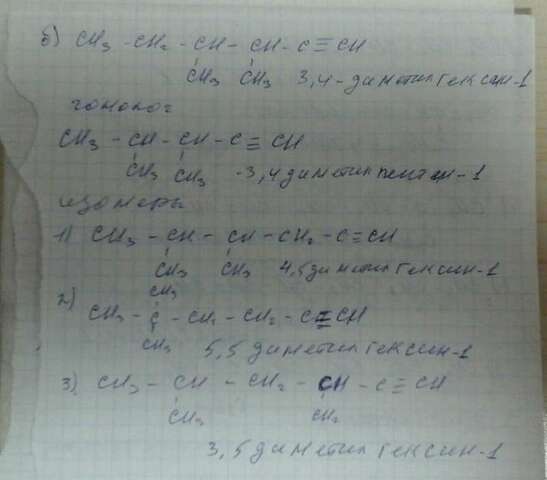 б) CH3 - CH2 - CH - CH - C ≡ CH
CH3 CH3 3,4-диметилгексин-1
гомолог
CH3 - CH - CH - C ≡ CH
CH3 CH3 -3,4 диметил пентин-1
изомеры
1) CH3 - CH - CH - CH2 - C ≡ CH
CH3 CH3 4,5 диметил гексин-1
CH3
2) CH3 - C - CH2 - CH2 - C ≡ CH
CH3 5,5 диметил гексин-1
3) CH3 - CH - CH2 - CH - C ≡ CH
CH3 CH3
3,5 диметил гексин-1